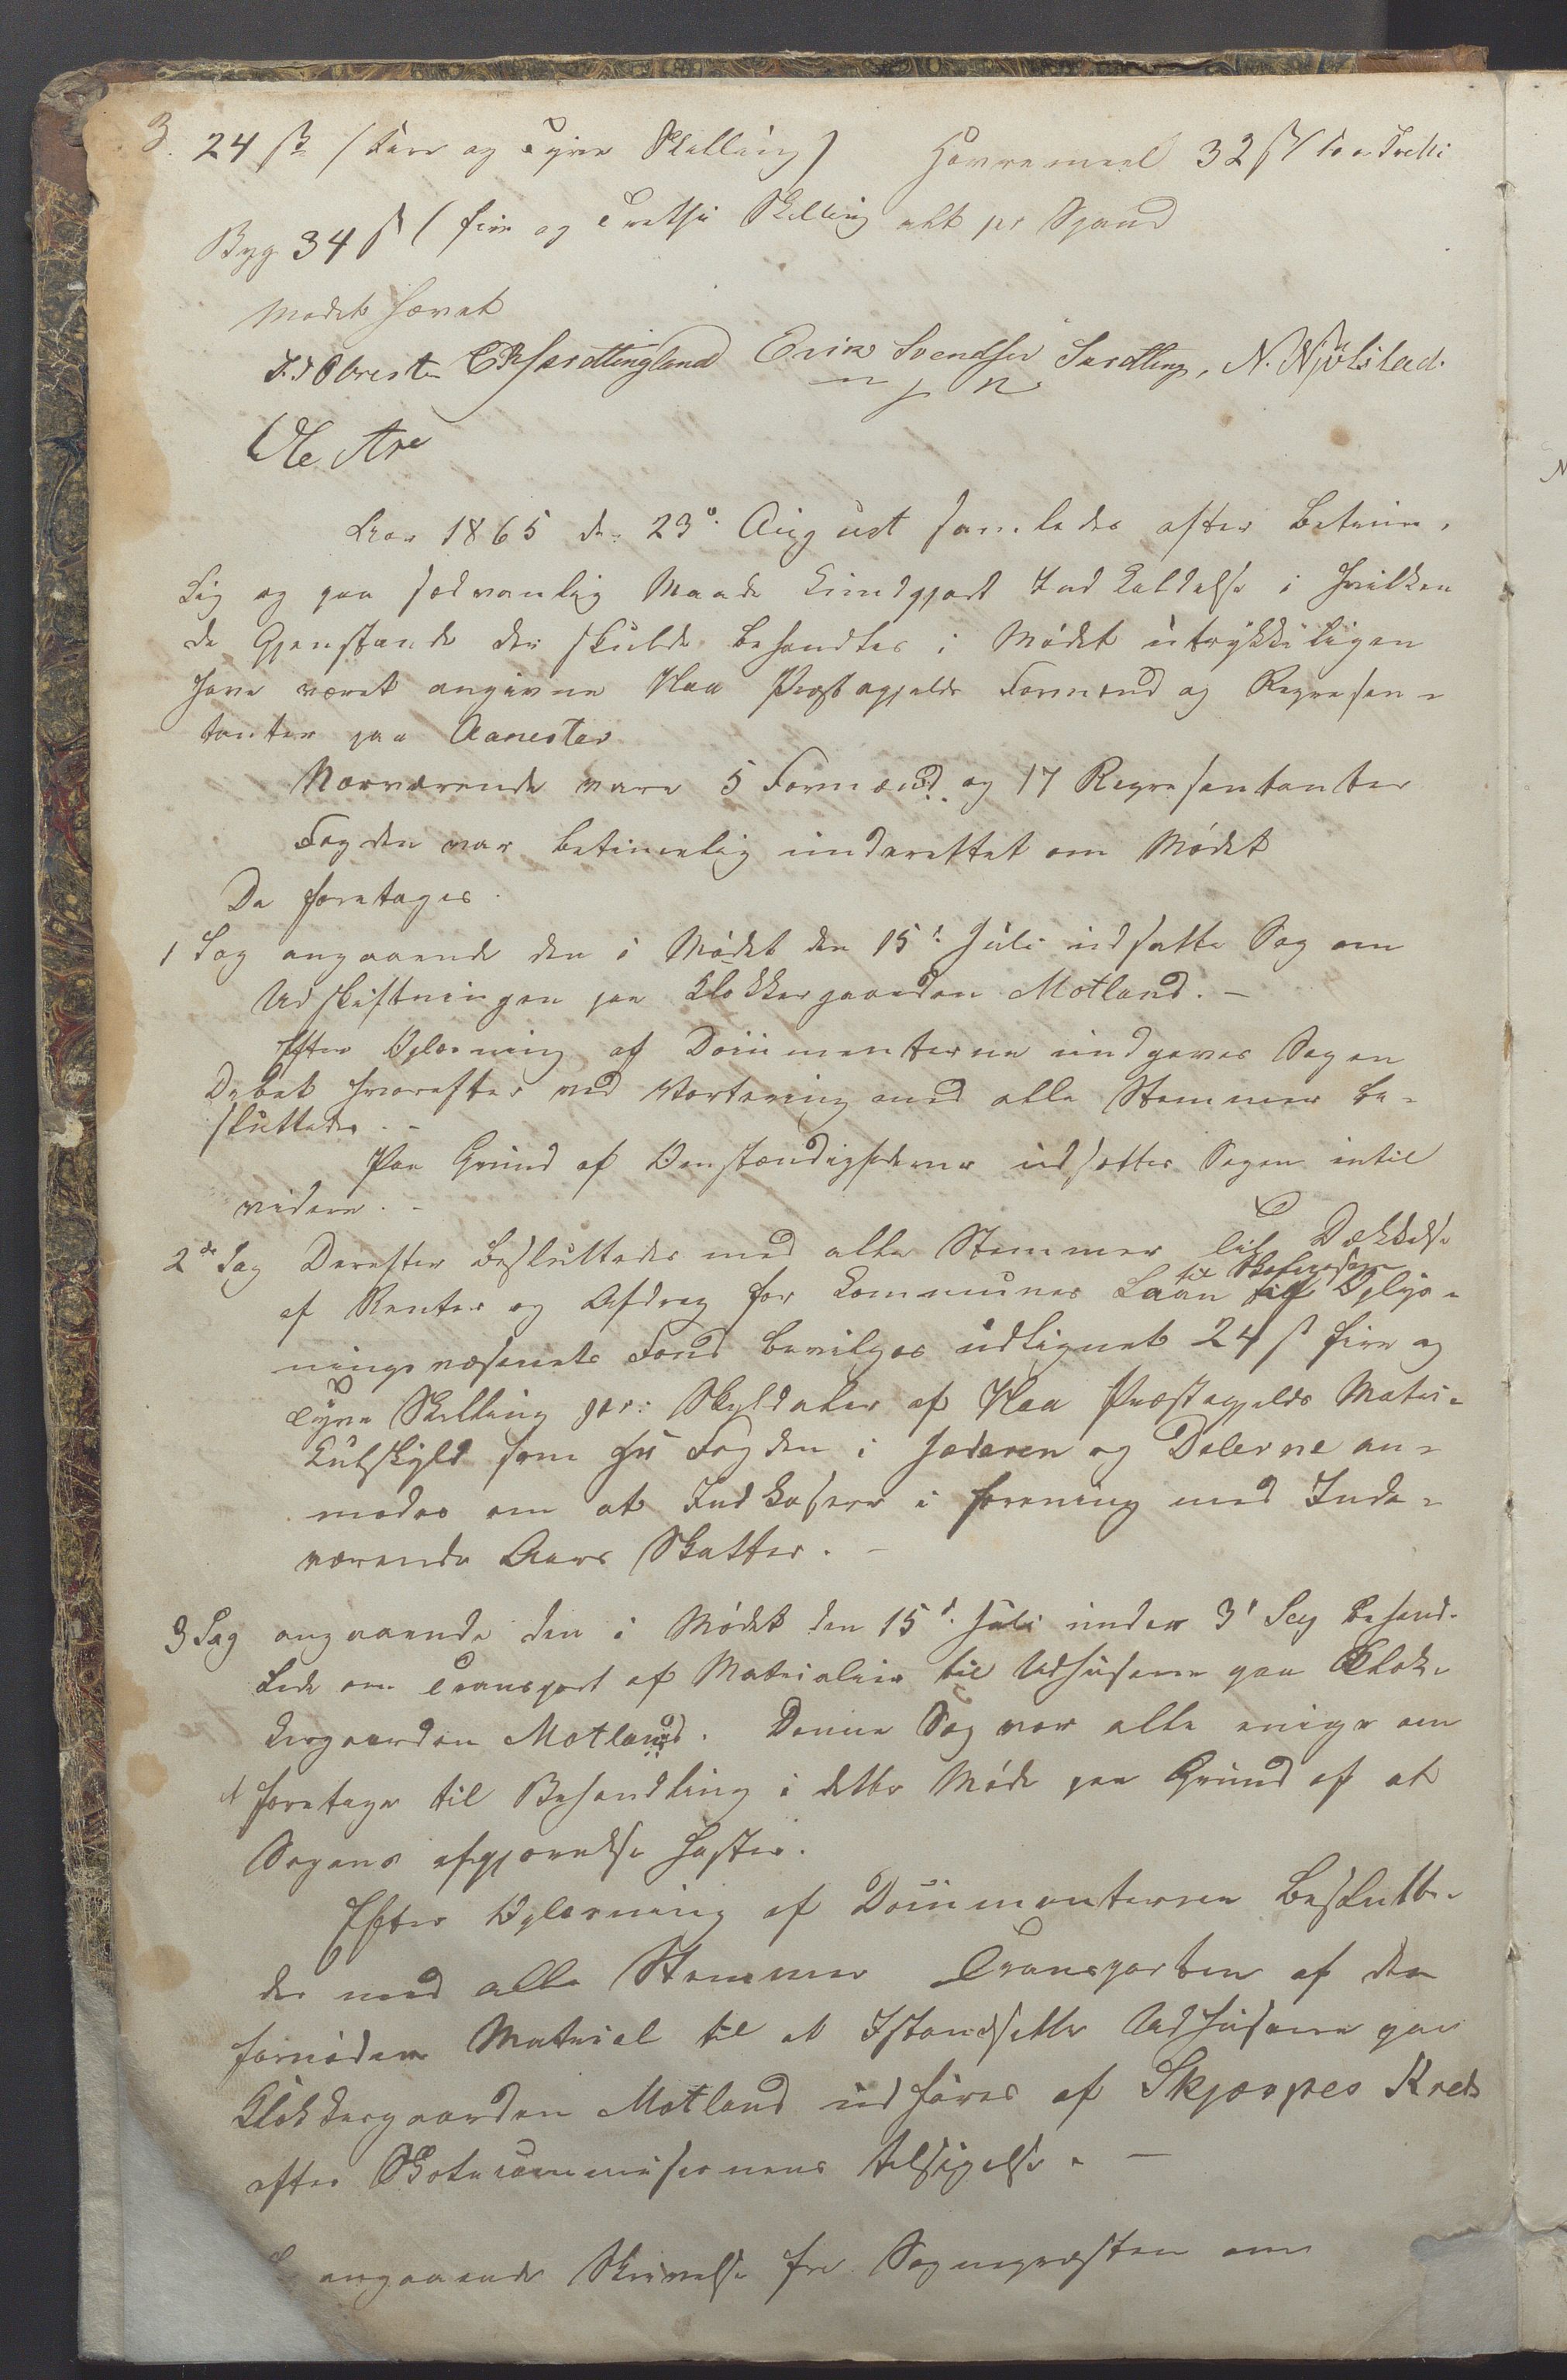 3.
24 ß (fire og Tyve Skilling) Havremeel 32 ß (to og Tretti
Byg 34 ß (fire og Tretti Skilling alt pr Spand
Mødet hævet
Erik Svendsen Sardtling, N. Njølstad.
m p n
Ole Are
Aar 1865 den 23de August samledes efter betime-
lig og paa sædvanlig Maade kundgjort Indkaldelse i hvilken
de Gjenstande der skulde behandles i Mødet udtrykkeligen
have været angivne Haa Præstegjelds Formænd og Represen-
tanter paa Aanestad
Nærværende vare 5 Formænd og 17 Representanter
Fogden var betimelig underrettet om Mødet
Da foretages
1 Sag angaaende den i Mødet den 15de Juli udsatte Sag om
Udskiftningen paa Klokkergaarden Motland. –
Efter Oplæsning af Documenterne undgaves Sagen
Debat hvorefter ved Vortering med alle Stemmer be-
sluttedes. –
Paa Grund af Omstændighederne udsættes Sagen intil
videre. –
2de Sag Derefter besluttedes med alle Stemmer til Dækkelse
af Renter og Afdrag for Communes Laan til Oplys-
til
ningsvæsenets Fond bevilges udlignet 24 ß fire og
Tyve Skilling pr: Skylddaler af Haa Præstegjelds Matri-
kulskyld som Hr Fogden i Jæderen og Dalerne an-
modes om at Indkasere i forening med Inde-
værende Aars Skatter. –
3 Sag angaaende den i Mødet den 15de Juli under 3' Sag behand-
lede om Transport af Materialier til Udhusene paa Klok-
kergaarden Motland. Denne Sag var alle enige om
at foretage til Behandling i dette Møde paa Grund af at
Sagens afgjørelse haster.
Efter Oplæsning af Documenterne beslutte-
des med alle Stemmer Transporten af den
fornødne Material til at Istandsætte Udhusene paa
Klokkergaarden Motland udføres af Skjærpes Kreds
efter Skolecommisionens tilsigelse. –
angaaende Skrivelse fra Sognepræsten om